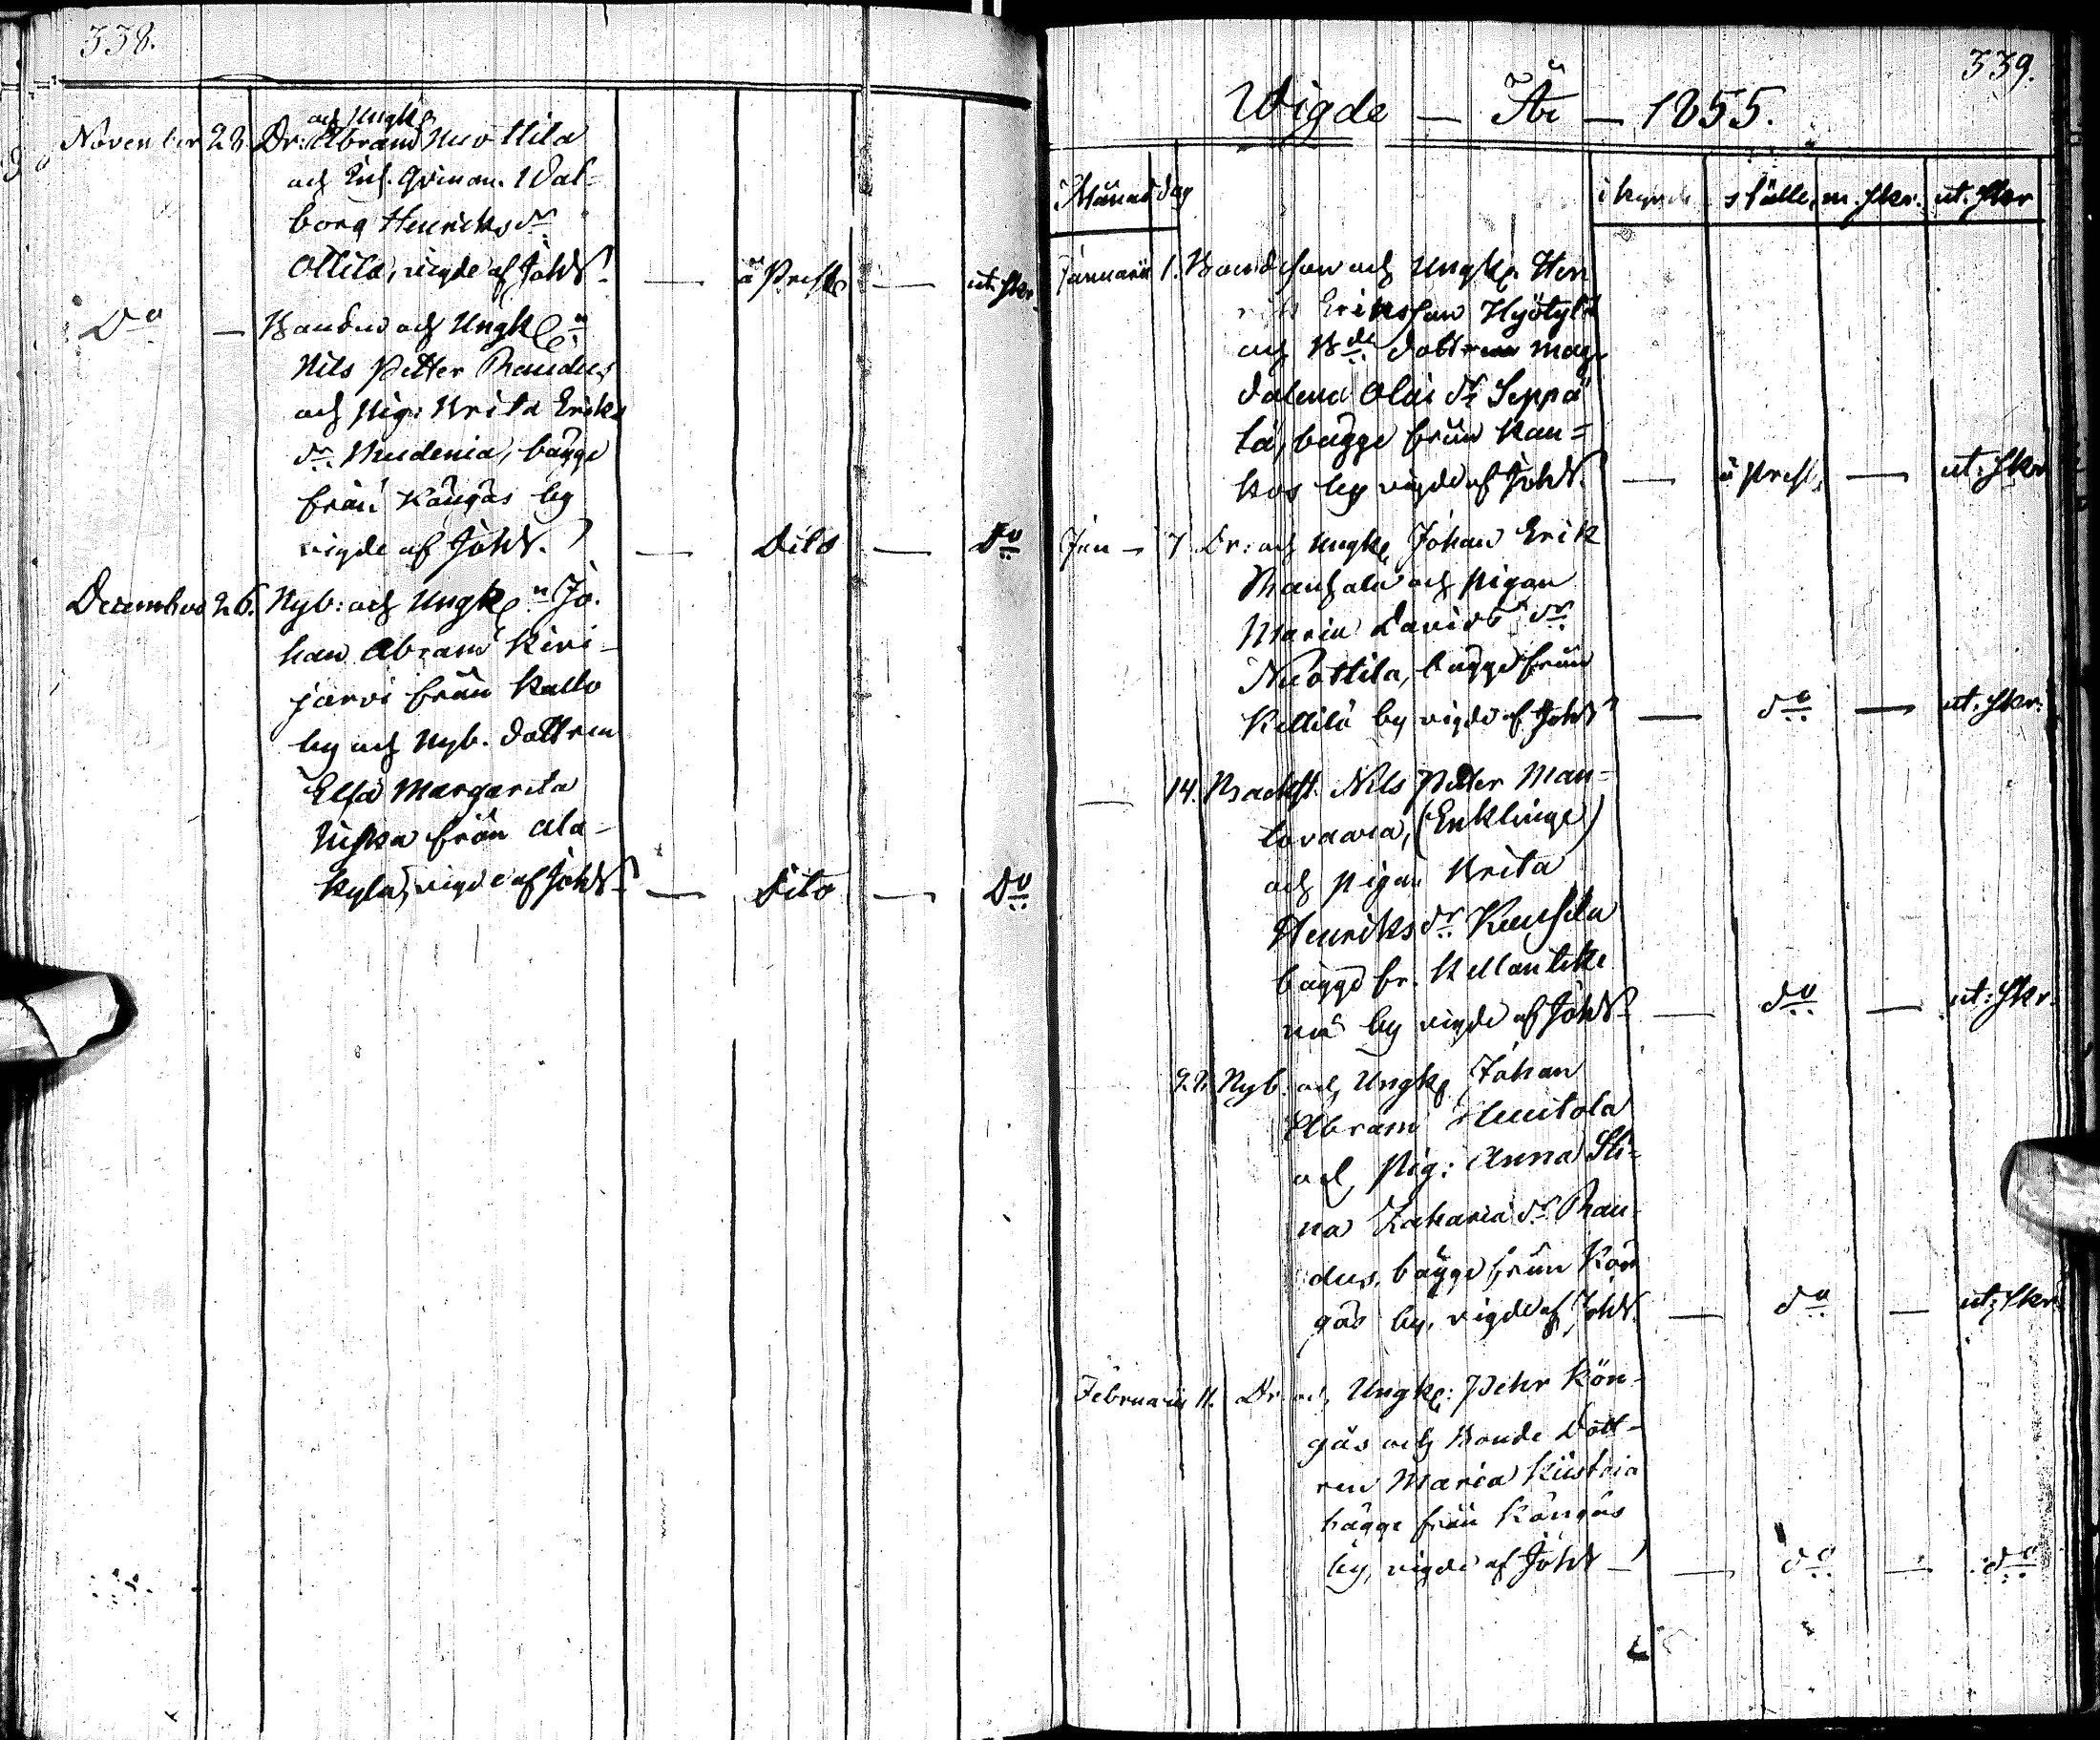 338.
och Ungk
November 28. Dr: Abram Nuottila
och Enk. Qvinan. Wal-
borg Henriksdr
Ollila, vigde af Johds. — å Prestg — ut. skr.
Do — Bonden och Ungkn
Nils Petter Raudus
och Pig: Brita Eriks
dr. Rudenia, bägge
från Köngäs by
vigde af Johds. — Dito — Do
December 26. Nyb: och Ungkn Jo-
han Abram Kivi-
järvi från Kallo
by och Nyb. dottren
Elsa Margareta
Niska från Ala-
kylä, vigde af Johds. — Dito — Do
339.
Wigde — År — 1855.
Månad dag i kyrk ställe, m. skr. ut. skr
Januarii 1. Bondeson och Ungk. Hen
rik Eriksson Hyötylä
och Bde dottren Mag-
dalena Olai dr Seppä
lä, bägge från Kau-
kos by vigde af Johds. — å Prest, — ut: skr
Jan — 7 Dr: och Ungk Johan Erik
och Pigan
Maria Davids dr
Nuottila, bägge från
Kittilä by vigde af Johds — do — ut. skr:
— 14. Nils Petter Man-
tovaara, (Enklinge)
och pigan Brita
Henriksdr
bägge fr. Kellonteke
mä by vigde af Johds — do — ut: skr.
22. Nyb: och Ungk Johan
Abram Huitola
och Pig: Anna Sti-
na Zacharia dr Rau-
dus, bägge från Kön
gäs by, vigde af Johds. — do — ut: skr
Februarii 11. Dr. och Ungk: Pehr Kön-
gäs och Bonde Dott-
ren Maria Kiistria
bägge från Köngäs
by, vigde af Johds — — do — do